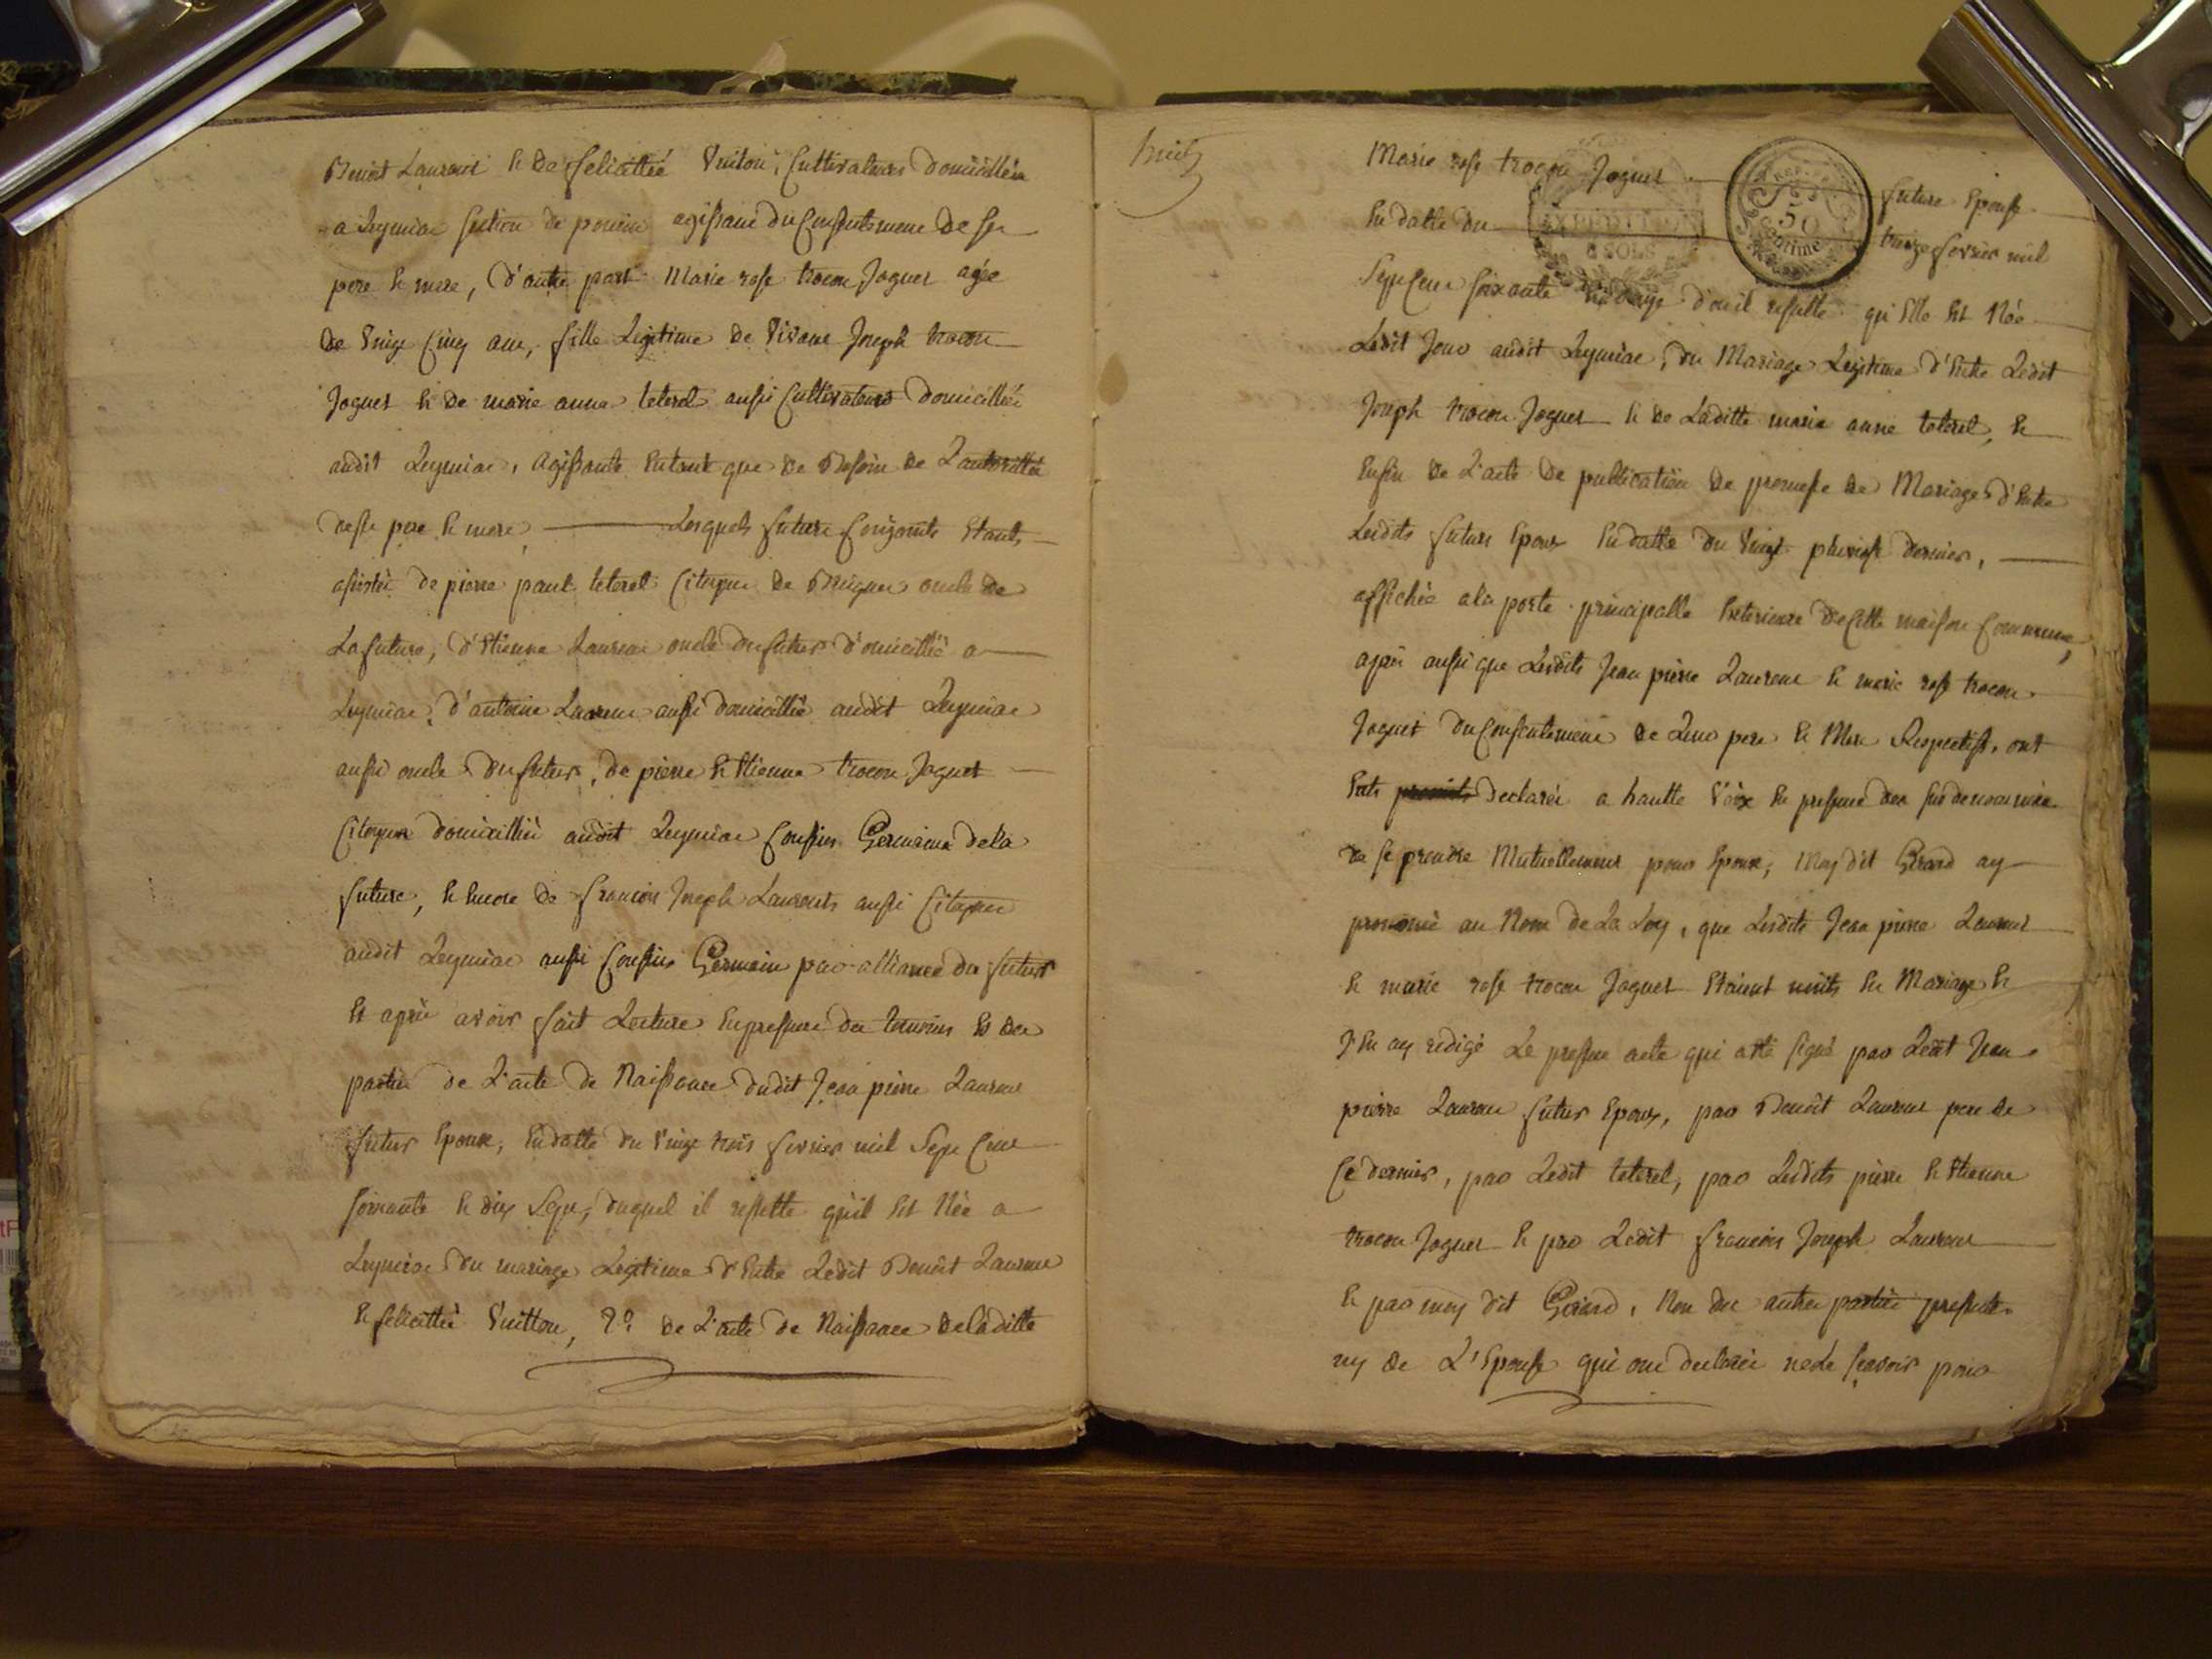 Benoit Laurent & de felicittée Vuiton, Cultivateurs domicilliés
a Leymiac section de agissant du Consentement de ses
pere & mere, d'autre part Marie rose trocon Joguet agée
de Vingt Cinq ans, fille Legitime de Vivant Joseph trocon
Joguet & de marie anne teteret aussi Cultivateurs domicilliés
audit Leymiac, agissante Entant que de Besoin de L'autorittée
desse pere & mere, Lesquels futurs Conjoints Etants
assistés de pierre paul teteret Citoyen de oncle de
La future, d'Etienne Laurent oncle du futur domicillié a
Leymiac, d'antoine Laurent aussi domicillié audit Leymiac
aussi oncle du futur, de pierre & Etienne trocon Joguet
Citoyens domicilliés audit Leymiac Cousins Germains dela
future, & Encore de francois Joseph Laurents aussi Citoyen
audit Leymiac aussi Cousin Germain par alliance du futur
Et après avoir fait Lecture En presence des temoins Et des
parties de L'acte de Naissance dudit Jean pierre Laurent
futur Epoux, En datte du Vingt trois fevrier mil Sept Cent
soixante & dix Sept, duquel il resulte qu'il Est Née a
Leymiac du mariage Legitime d'Entre Ledit Benoit Laurent
& felicittée Vuitton, 2? de L'acte de Naissance deladitte
huit
Marie rose trocon Joguet future Epouse
En datte du treize fevrier mil
EXPEDITION
8 SOLS
REP. FRA.
50
Centime
Sept Cent soixante d'ou il resulte qu'Elle Est Née
Ledit Jour audit Leymiac, du Mariage Legitime d'Entre Ledit
Joseph trocon Joguet & de Laditte marie anne teteret, &
Enfin de L'acte de publication de promesse de Mariage d'Entre
Lesdits futurs Epoux En datte du Vingt pluviose dernier,
affichée a la porte principalle Exterieure de Cette maison Commune,
après aussi que Lesdits Jean pierre Laurent & marie rose trocon
Joguet du Consentement de Leur pere & Mere Respectifs, ont
Euts declarés a hautte Voix En presence des
de se prendre Mutuellement pour Epoux, Moy dit Girard ay
prononcé au Nom de La Loy, que Lesdits Jean pierre Laurent
& marie rose trocon Joguet Etaient units En Mariage &
J'En ay redigé Le present acte qui a été signé par Ledit Jean
pierre Laurent futur Epoux, par Benoit Laurent pere de
Ce dernier, par Ledit teteret, par Lesdits pierre & Etienne
trocon Joguet & par Ledit francois Joseph Laurent
& par moy dit Girard, Non des autres parties presentes
ny de L'Epouse qui ont declarés ne Le scavoir pour